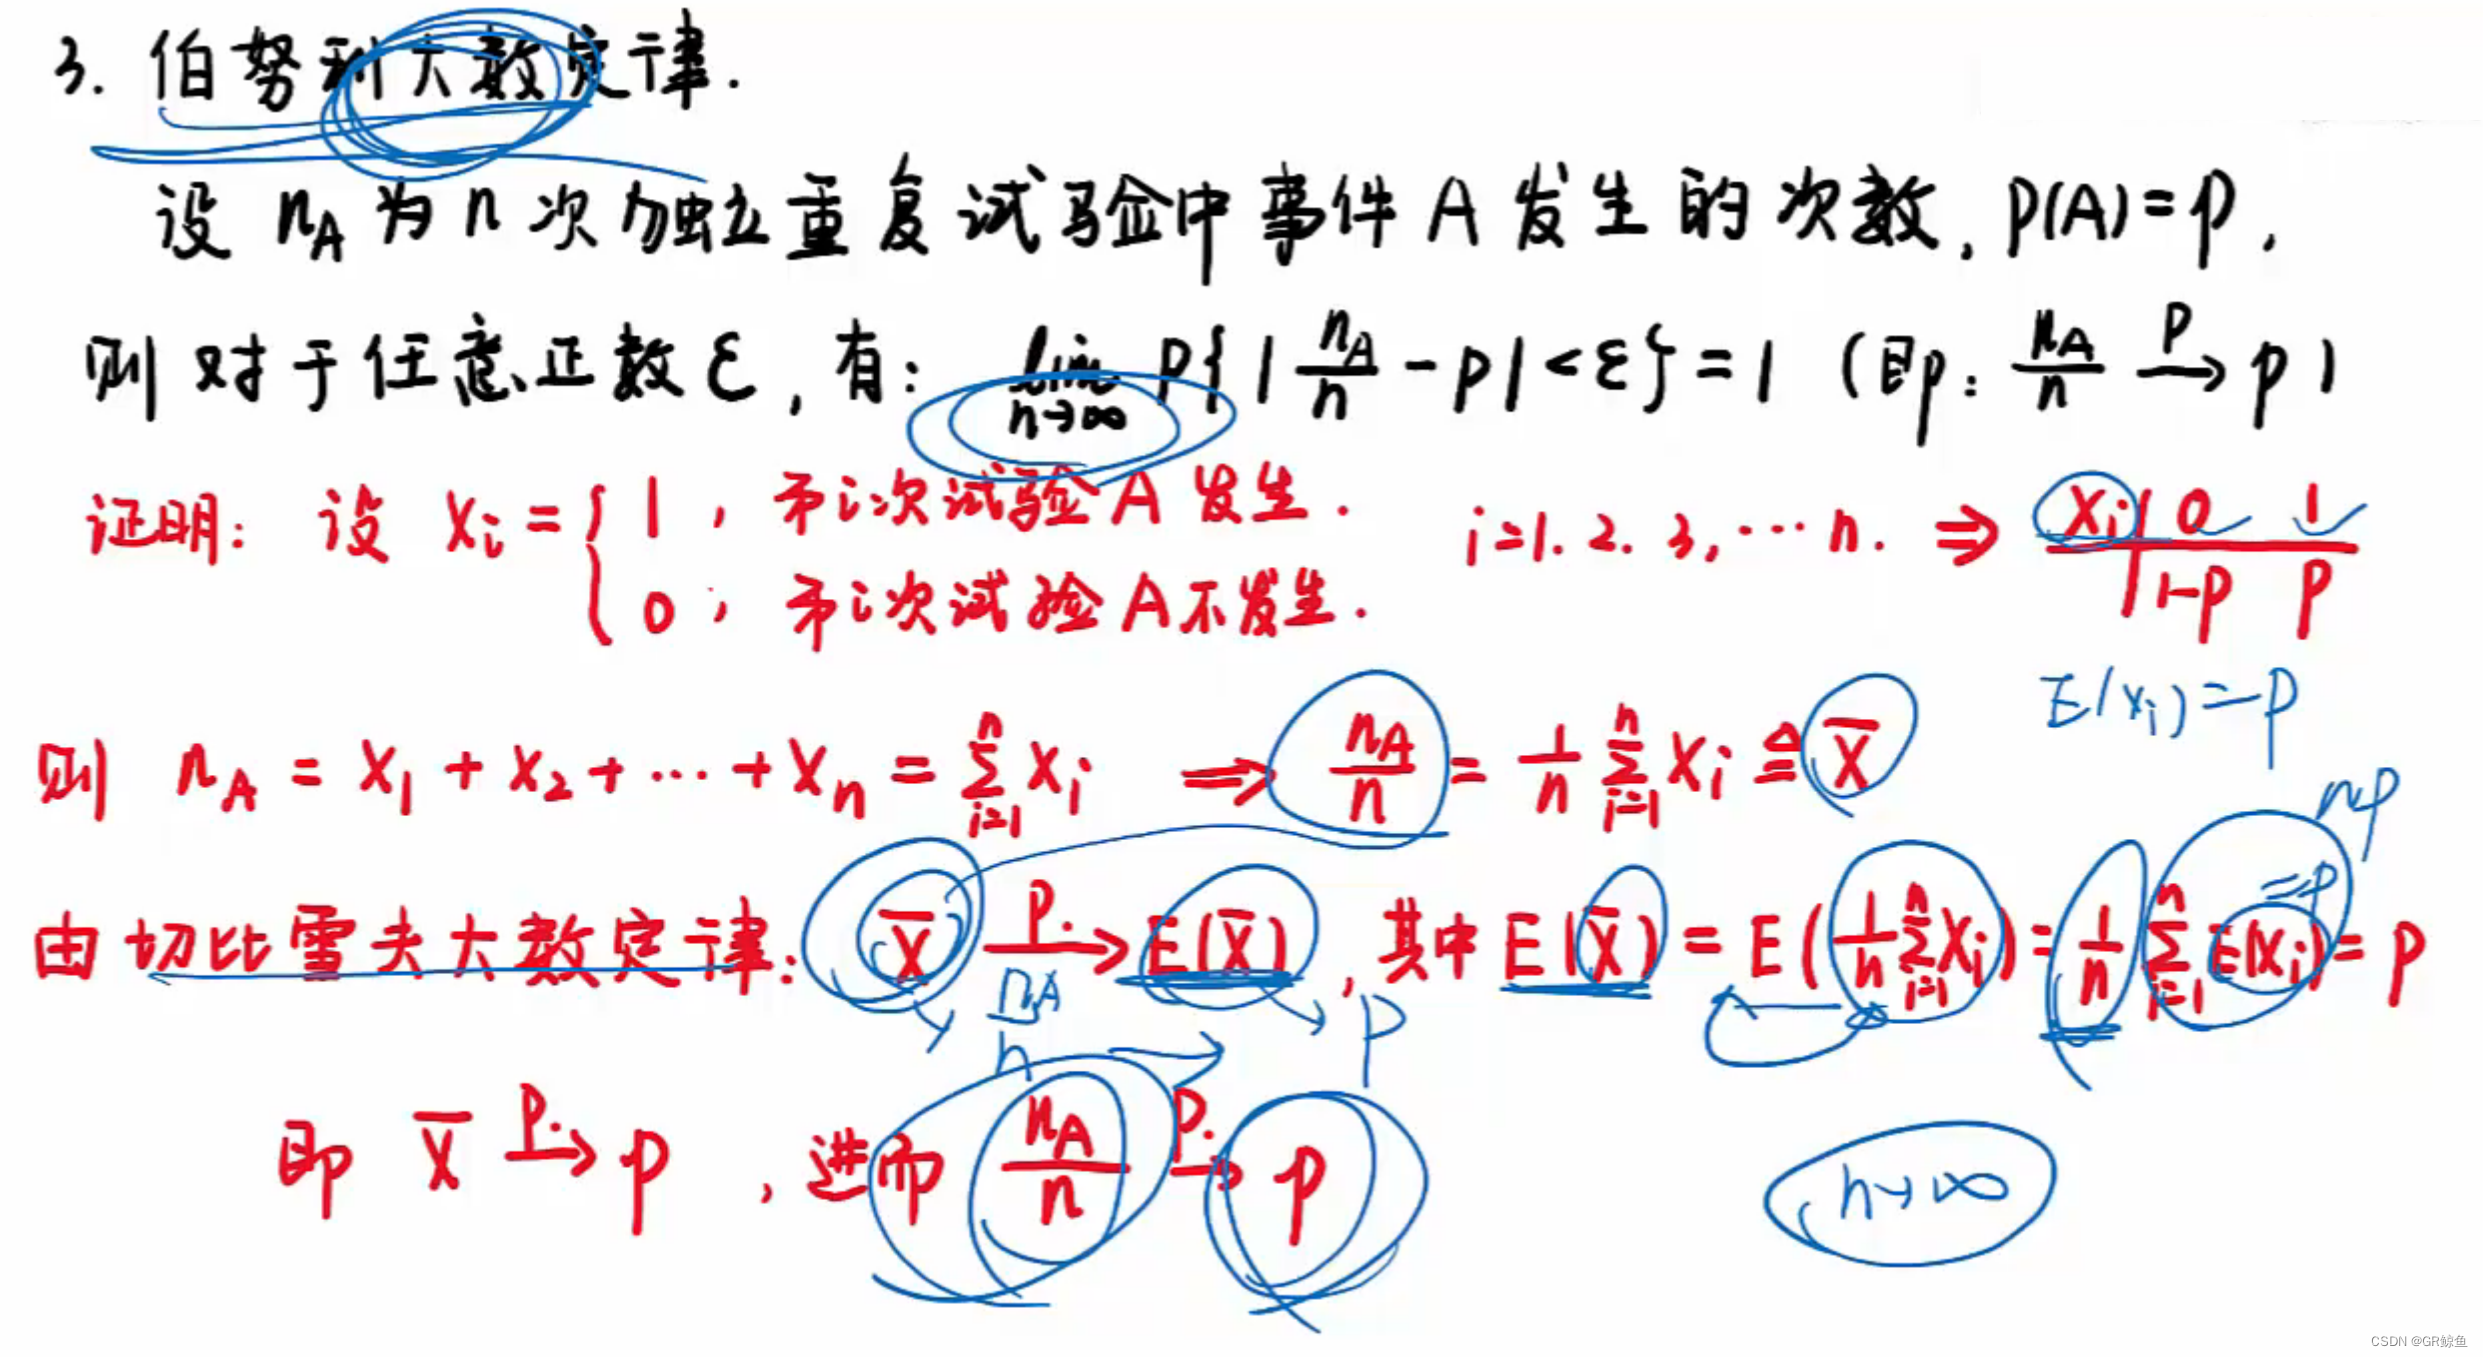 3. 伯努利大数定律.
设 n_A 为 n 次独立重复试验中事件 A 发生的次数, P(A)=p,
则对于任意正数 ε, 有: lim_{n→∞} P{|n_A/n - p|<ε}=1 (即: n_A/n —P→ p)
证明: 设 X_i = { 1, 第i次试验A发生. i=1.2.3,…n. ⇒ X_i | 0 1
0, 第i次试验A不发生. | 1-p p
E(X_i)=p
则 n_A = X_1 + X_2 + … + X_n = Σ_{i=1}^{n} X_i ⇒ n_A/n = 1/n Σ_{i=1}^{n} X_i ≜ X̄
np
=p
由切比雪夫大数定律: X̄ —P.→ E(X̄), 其中 E(X̄) = E(1/n Σ_{i=1}^{n} X_i) = 1/n Σ_{i=1}^{n} E(X_i) = p
n_A/n → p
即 X̄ —P.→ p, 进而 n_A/n —P.→ p
n→∞
CSDN @GR鲸鱼